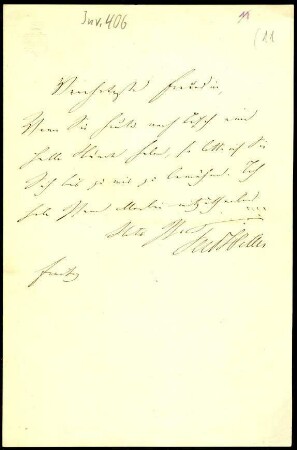 Inv. 406
11
(11
Verehrteste Freundin,
Wenn Sie heute noch Tisch eine
halbe Stunde haben, so bitte ich Sie
Sich bis zu mir zu bemühen. Ich
habe Ihnen mitzutheilen
Stets Ihr
Ferd Hiller
freitg